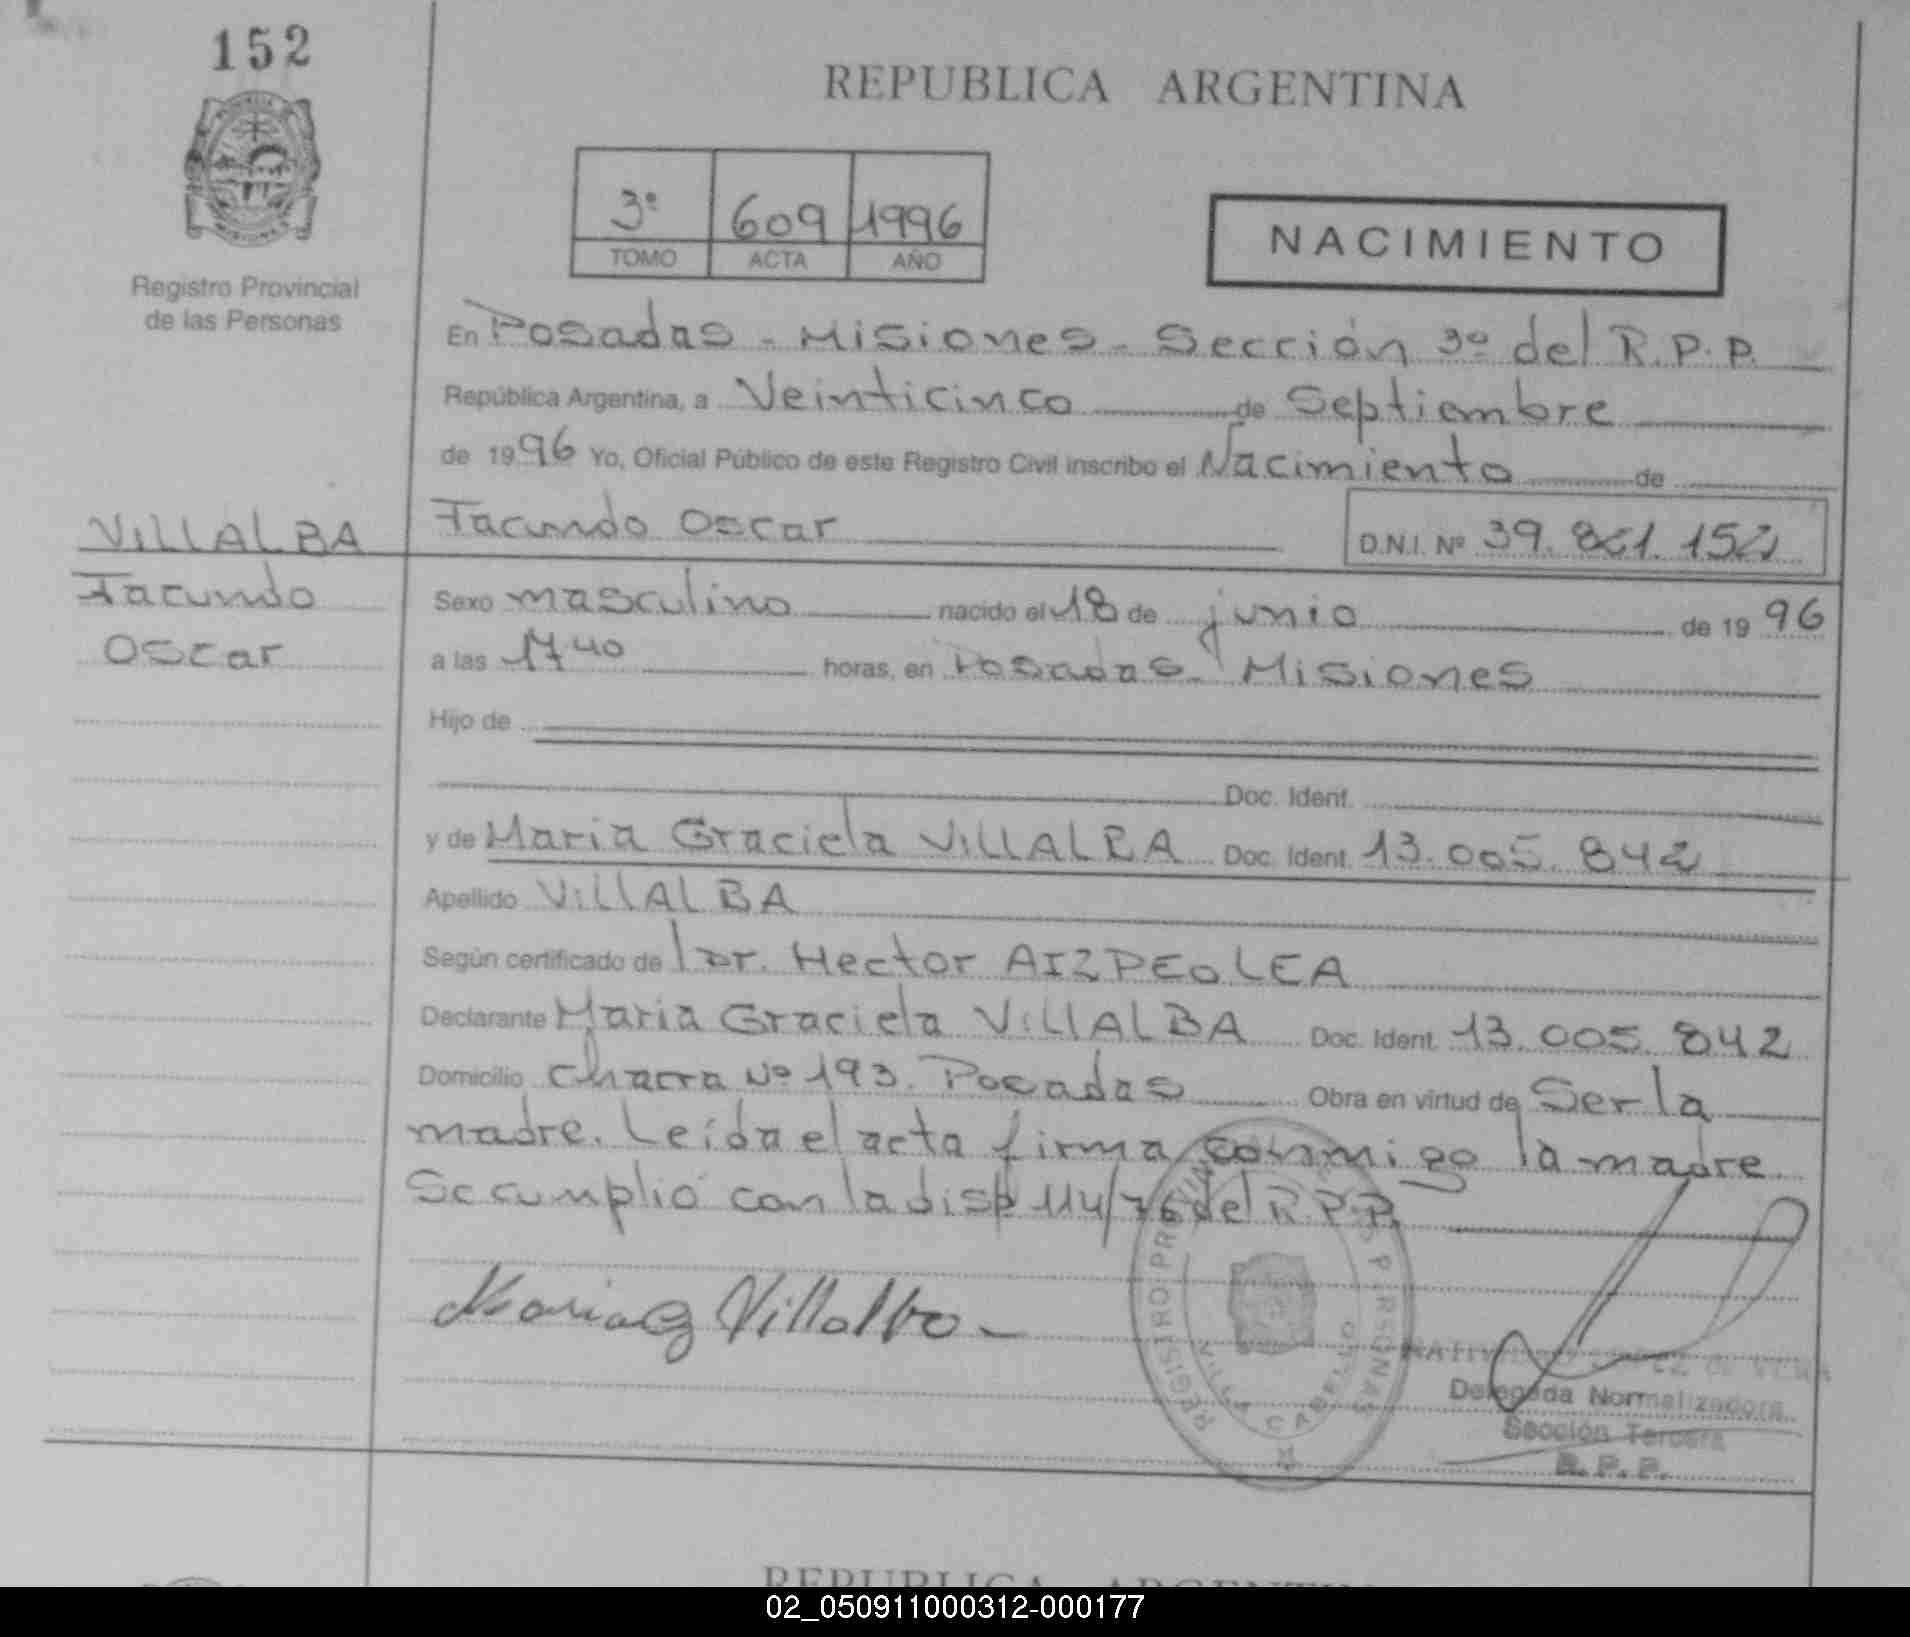 152
REPUBLICA ARGENTINA
3º 609 1996
TOMO ACTA AÑO
NACIMIENTO
Registro Provincial
de las Personas
En Posadas - Misiones - Sección 3º del R.P.P.
República Argentina, a Veinticinco de Septiembre
de 1996 Yo, Oficial Público de este Registro Civil inscribo el Nacimiento de
VILLALBA
Facundo
Oscar
Facundo Oscar D.N.I. Nº 39. 152
Sexo masculino nacido el 18 de junio de 1996
a las 17 40 horas, en Posadas - Misiones
Hijo de
Doc. Ident.
y de Maria Graciela VILLALBA Doc. Ident. 13.005.842
Apellido VILLALBA
Según certificado de Dr. Hector AIZPEOLEA
Declarante Maria Graciela VILLALBA Doc. Ident. 13.005.842
Domicilio Chacra Nº 193. Posadas Obra en virtud de Ser la
madre. Leída el acta firma conmigo la madre
Se cumplió con la disp 114/76 del R.P.P.
Maria G Villalba
REGISTRO PROVINCIAL PERSONAS
VILLA CABELLO
Delegada Normalizadora
Sección Tercera
R.P.P.
REPUBLICA ARGENTINA
02_050911000312-000177